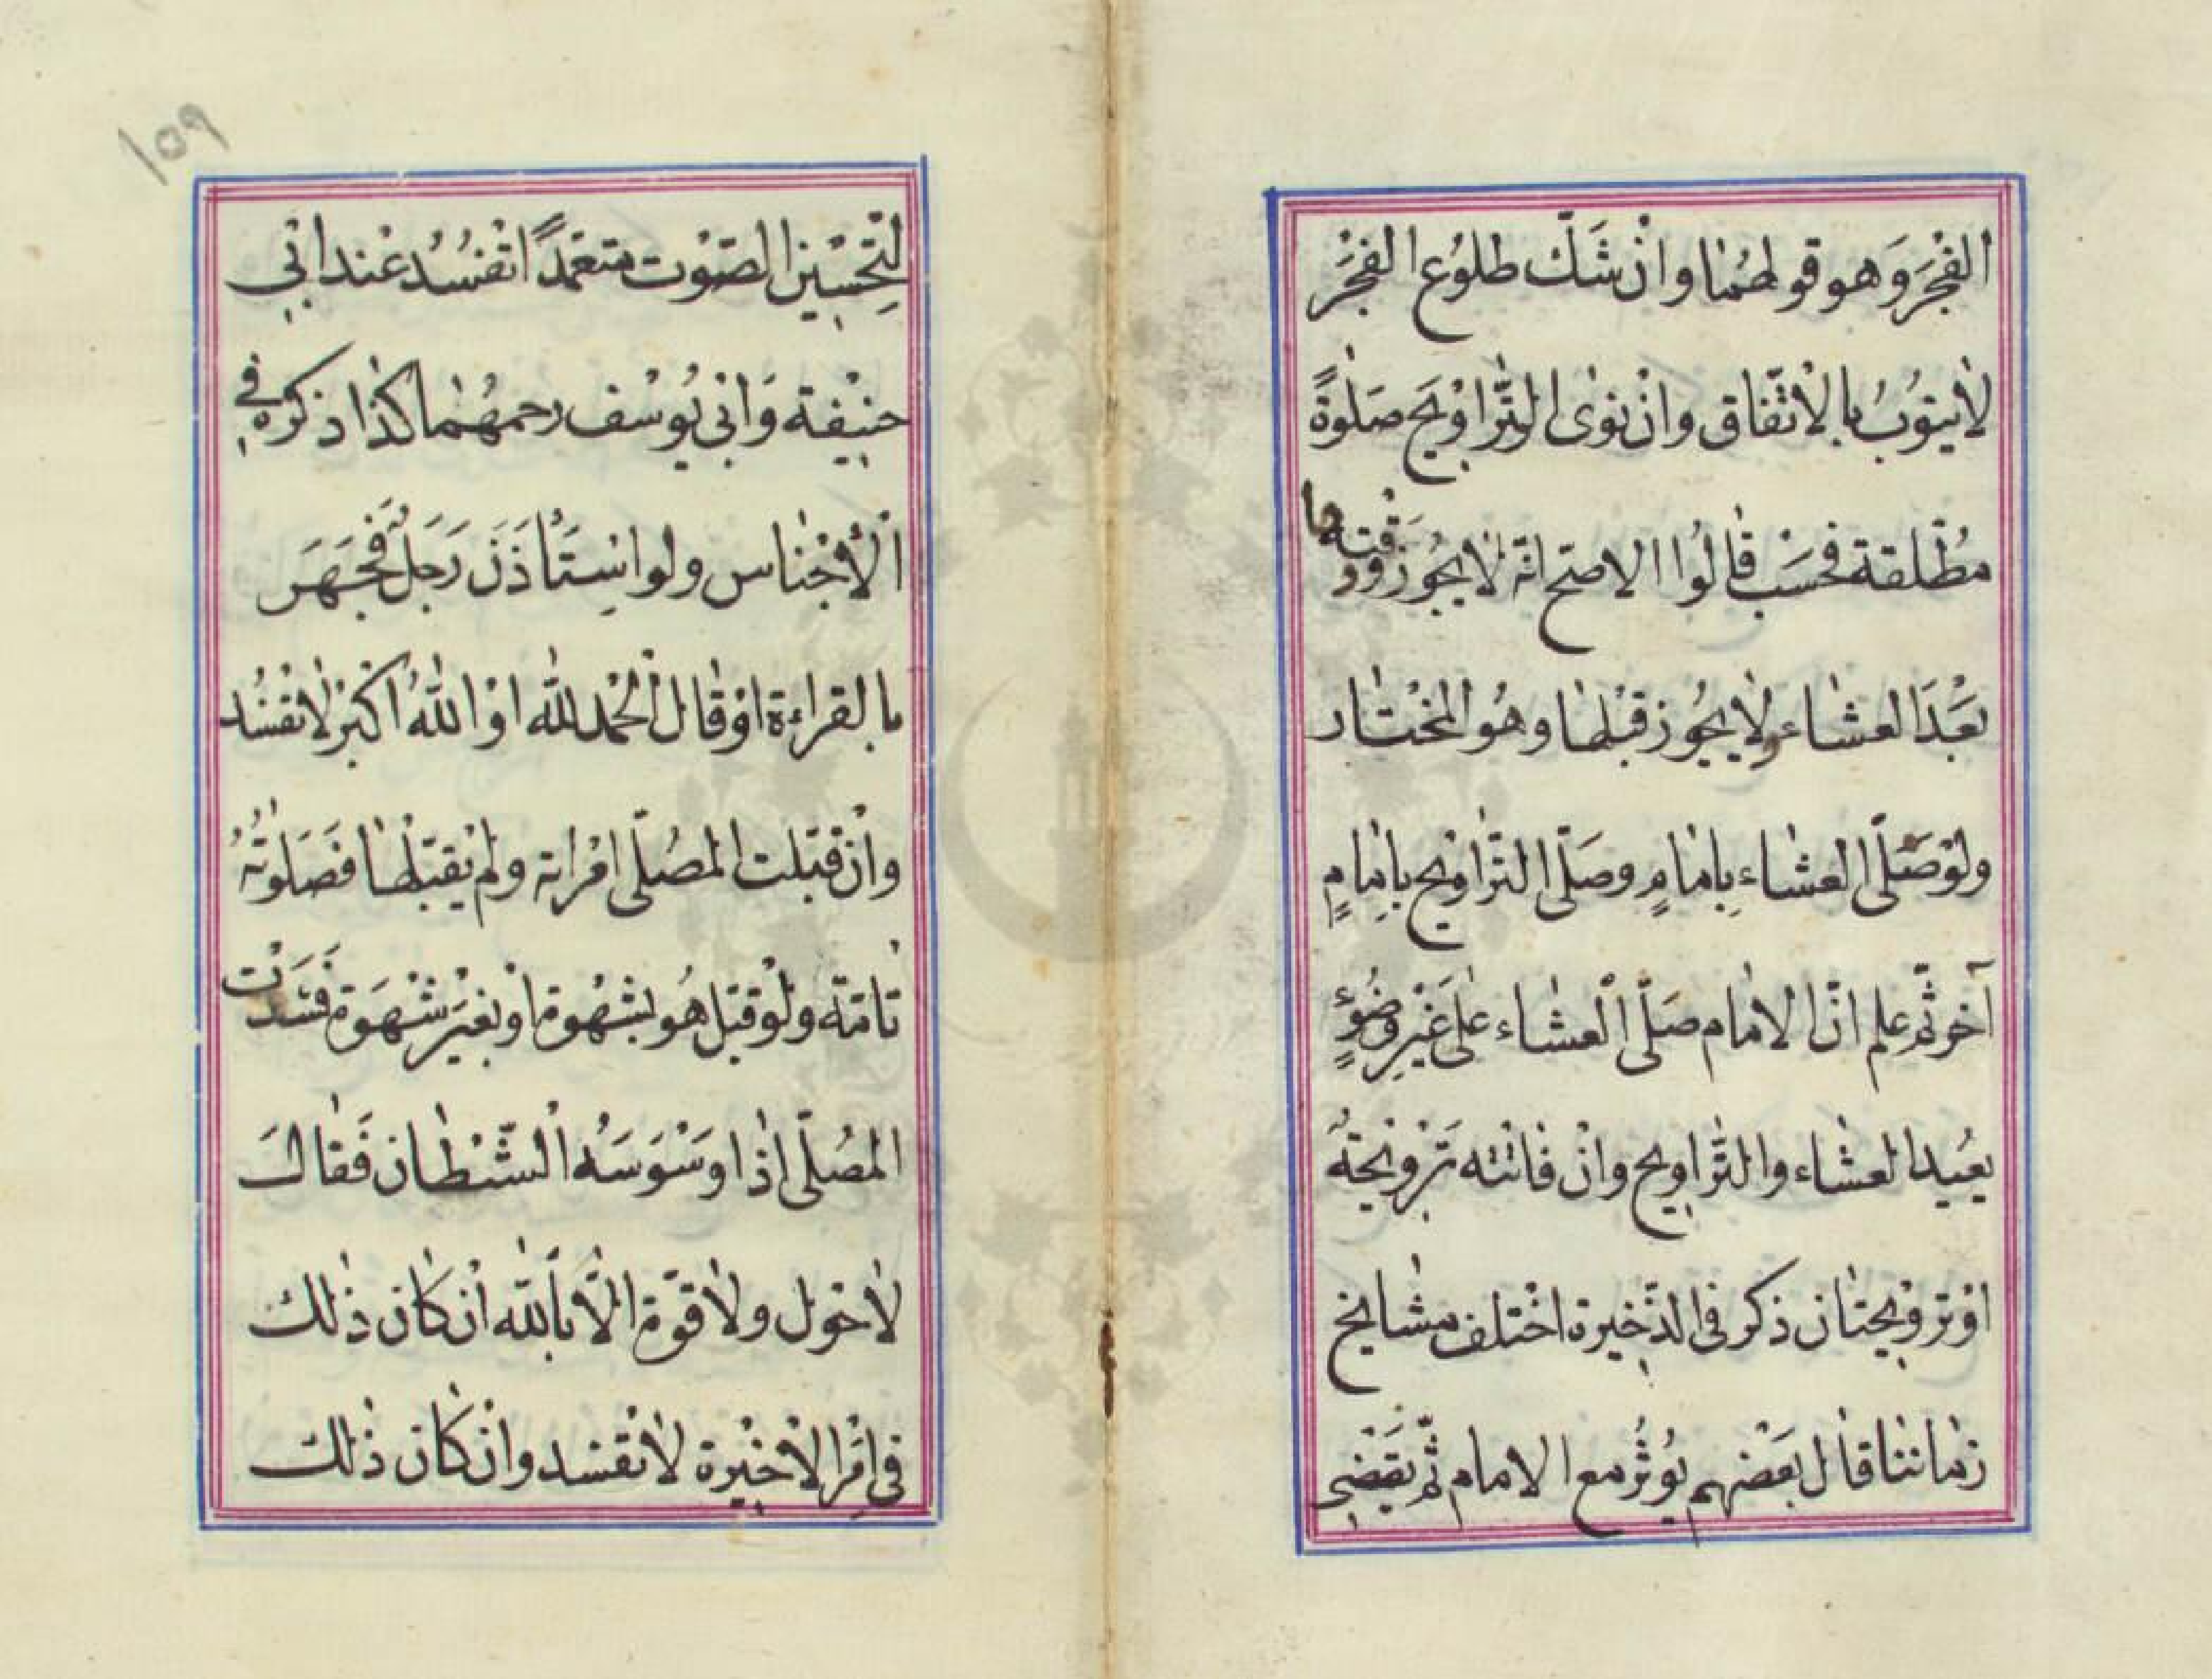 الفْجَر وَهو قولهُما وانْ شَكّ طلوُع الفجْر
لايتوُبُ بالاتّفاق وانْ نوى التّراوْيح صلوةً
مُطْلقة فحسَبْ قالوُا الاصح انّه لايجُوز ووَقتها
بَعْدَ العشاء ولايجُوز قبْلها وهوُ المخْتار
ولوْصَلّى العشاء بِامامٍ وصَلّى التّراوْيح باِمامٍ
آخر ثمّ علم انّ الامام صَلّى الْعشاء على غَيْرِ وضُوءٍ
يعيُد العشاء والتّراويح وانْ فاتْته تَرْوْيحَةٌ
اوْ ترْوْيحتان ذكر فى الذّخيرة اختْلف مشايخ
زماننا قال بعَضْهم يوُترُ مع الامام ثمّ يقَضْى
لِتحِسْين الصَوْت متعمّداً تفْسُدُ عنْد ابْي
حنيْفة وَابْى يوُسْف رحمهُما كذا ذكرهُ في
الْاجْناس ولو اسِتَاْذَنَ رَجَلٌ فَجَهَرَ
بالقراءة اوْقال الْحْمد للّه اوْ اللّهُ اكْبرْ لاتفْسُد
وانْ قبّلت المصُلّى امْراته ولمْ يقبّلْها فَصَلوتُهُ
تامّة ولوْ قبّل هوُ بشهْوة اوْ بغيْر شْهَوة فَسَدَتْ
المصُلّى اذا وَسْوَسَهُ الْشّيْطان فَقالَ
لاحوْل ولاقوّة الّا بالْلّه انْ كان ذلك
فى امْرِ الاخْيرة لاتفْسد وانْ كان ذلك
١٥٩